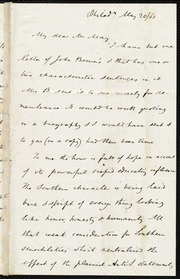 Philad'a May 20/61
My dear Mr May,
I have but one
letter of John Brown's & that has one or
two characteristic sentences in it.
Mrs B. sent is to me merely for re-
membrance it would be worth quoting
in a biography & I would have sent it
to you (or a copy) had there been time
To me the hour is full of hope on account
of its powerful rapid educating influence.
The Southern character is being laid
bare & stript of every thing looking
like honor, honesty & humanity. All
that weak consideration for Southern
sensibilities which neutralized the
effect of the plainest Anti S. statement,